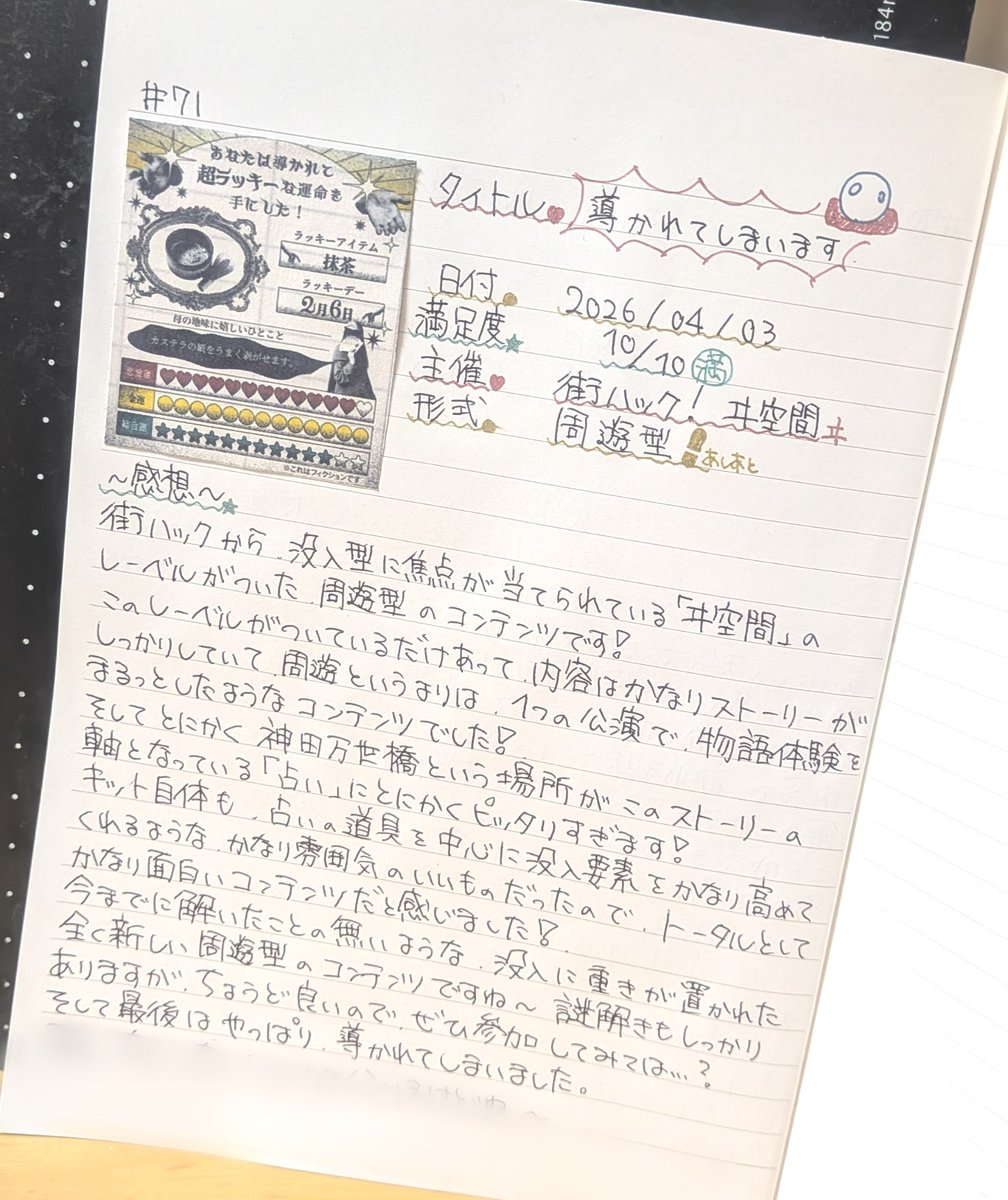 184
#71
あなたは導かれて
超ラッキーな運命を
手にした!
ラッキーアイテム
抹茶
ラッキーデー
2月6日
母の地味に嬉しいひとこと
カステラの紙をうまく剥がせます。
恋愛運
金運
総合運
※これはフィクションです
タイトル 導かれてしまいます
日付 2026/04/03
満足度 10/10 満
主催 街ハック! ヰ空間 ヰ
形式 周遊型 あしあと
〜感想〜
街ハックから、没入型に焦点が当てられている「ヰ空間」の
レーベルがついた、周遊型のコンテンツです!
このレーベルがついているだけあって、内容はかなりストーリーが
しっかりしていて、周遊というよりは、1つの公演で、物語体験を
まるっとしたようなコンテンツでした!
そしてとにかく神田万世橋という場所がこのストーリーの
軸となっている「占い」にとにかくピッタリすぎます!
キット自体も、占いの道具を中心に没入要素をかなり高めて
くれるような、かなり雰囲気のいいものだったので、トータルとして
かなり面白いコンテンツだと感じました!
今までに解いたことの無いような、没入に重きが置かれた
全く新しい周遊型のコンテンツですね〜 謎解きもしっかり
ありますが、ちょうど良いので、ぜひ参加してみては…?
そして最後はやっぱり、導かれてしまいました。